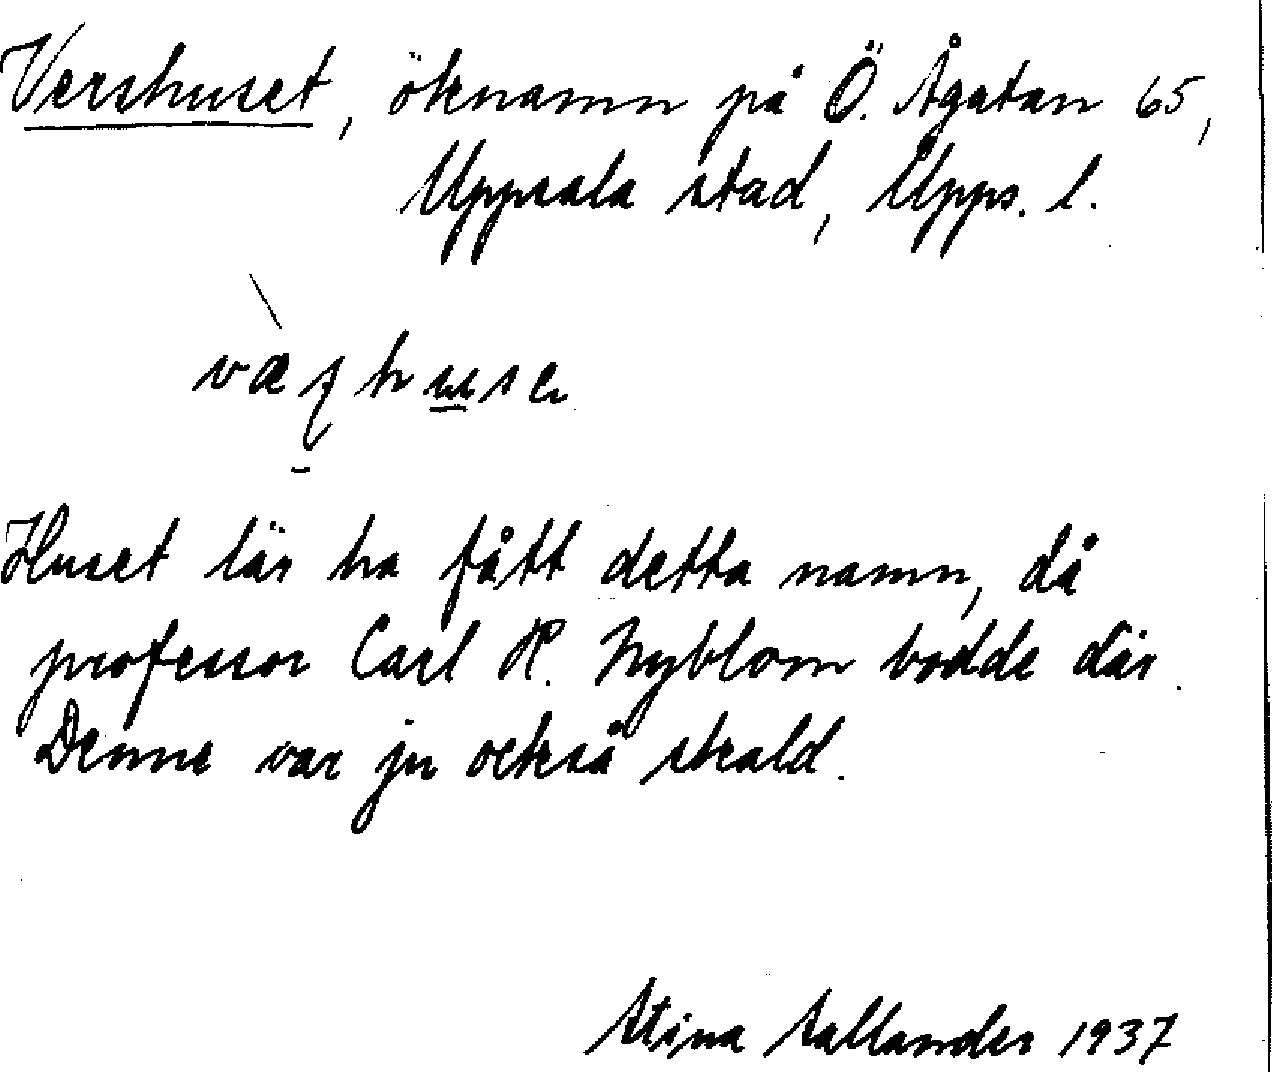 Vershuset, öknamn på Ö. Ågatan 65,
Uppsala stad, Upps. l.
Huset lär ha fått detta namn, då
professor Carl R. Nyblom bodde där.
Denne var ju också skald.
Stina Sallander 1937